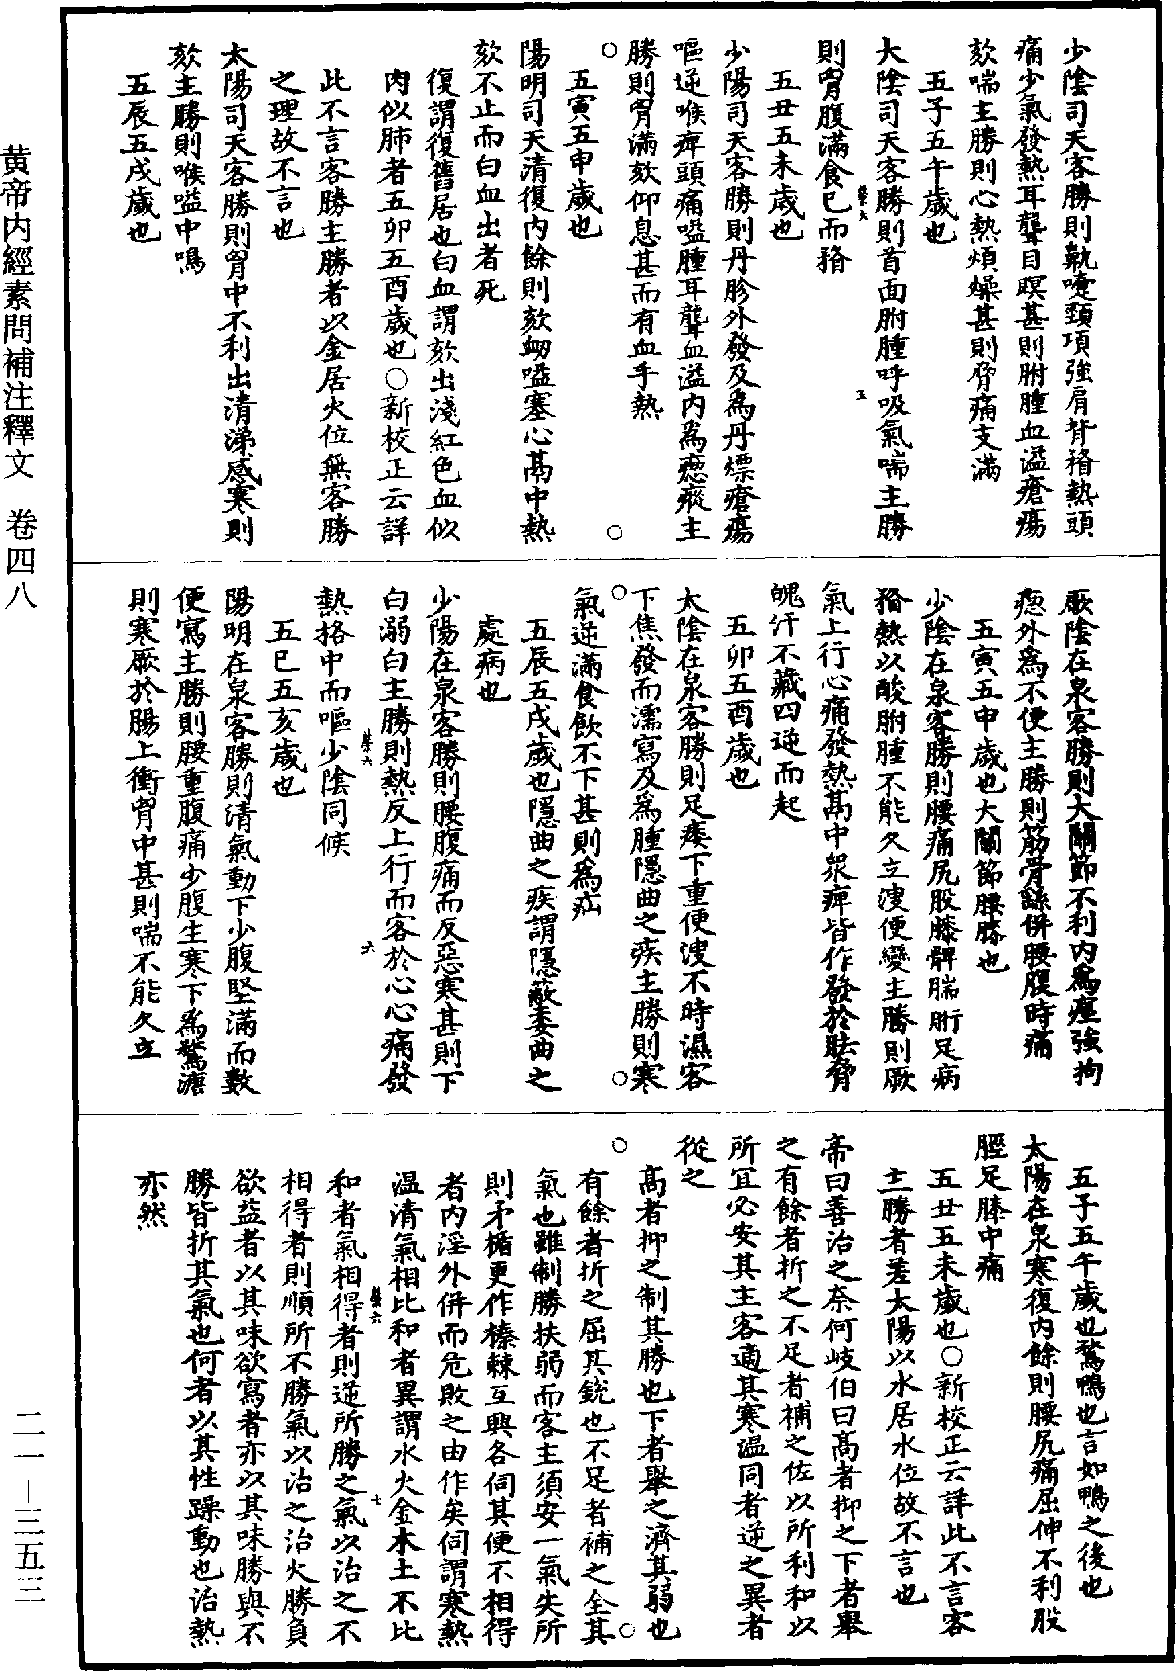 少陰司天客勝則鼽嚏頸項強肩背瞀熱頭
痛少氣發熱耳聾目瞑甚則胕腫血溢瘡瘍
欬喘主勝則心熱煩燥甚則脅痛支滿
五子五午歲也
大陰司天客勝則首面胕腫呼吸氣喘主勝
則胷腹滿食已而瞀
五丑五未歲也
少陽司天客勝則丹胗外發及爲丹熛瘡瘍
嘔逆喉痺頭痛嗌腫耳聾血溢内爲瘛瘲主
勝則胷滿欬仰息甚而有血手熱
五寅五申歲也
陽明司天清復内餘則欬衂嗌塞心鬲中熱
欬不止而白血出者死
復謂復舊居也白血謂欬出淺紅色血似
肉似肺者五卯五酉歲也○新校正云詳
此不言客勝主勝者以金居火位無客勝
之理故不言也
太陽司天客勝則胷中不利出清涕感寒則
欬主勝則喉嗌中鳴
五辰五戌歲也
厥陰在泉客勝則大關節不利内爲痙強拘
瘛外爲不便主勝則筋骨繇併腰腹時痛
五寅五申歲也大關節腰膝也
少陰在泉客勝則腰痛尻股膝髀腨䯒足病
瞀熱以酸胕腫不能久立溲便變主勝則厥
氣上行心痛發熱鬲中衆痺皆作發於胠脅
魄汗不藏四逆而起
五卯五酉歲也
太陰在泉客勝則足痿下重便溲不時濕客
下焦發而濡寫及爲腫隱曲之疾主勝則寒
氣逆滿食飲不下甚則爲疝
五辰五戌歲也隱曲之疾謂隱蔽委曲之
處病也
少陽在泉客勝則腰腹痛而反惡寒甚則下
白溺白主勝則熱反上行而客於心心痛發
熱格中而嘔少陰同候
五巳五亥歲也
陽明在泉客勝則清氣動下少腹堅滿而數
便寫主勝則腰重腹痛少腹生寒下爲鶩溏
則寒厥於腸上衝胷中甚則喘不能久立
五子五午歲也鶩鴨也言如鴨之後也
太陽在泉寒復内餘則腰尻痛屈伸不利股
脛足膝中痛
五丑五未歲也○新校正云詳此不言客
主勝者蓋太陽以水居水位故不言也
帝曰善治之奈何岐伯曰高者抑之下者舉
之有餘者折之不足者補之佐以所利和以
所宜必安其主客適其寒温同者逆之異者
從之
高者抑之制其勝也下者舉之濟其弱也
有餘者折之屈其銳也不足者補之全其
氣也雖制勝扶弱而客主須安一氣失所
則矛楯更作榛棘互興各伺其便不相得
者内淫外併而危敗之由作矣伺謂寒熱
温清氣相比和者異謂水火金木土不比
和者氣相得者則逆所勝之氣以治之不
相得者則順所不勝氣以治之治火勝負
欲益者以其味欲寫者亦以其味勝與不
勝皆折其氣也何者以其性躁動也治熱
亦然
黄帝内經素問補注釋文 卷四八
二一—三五三